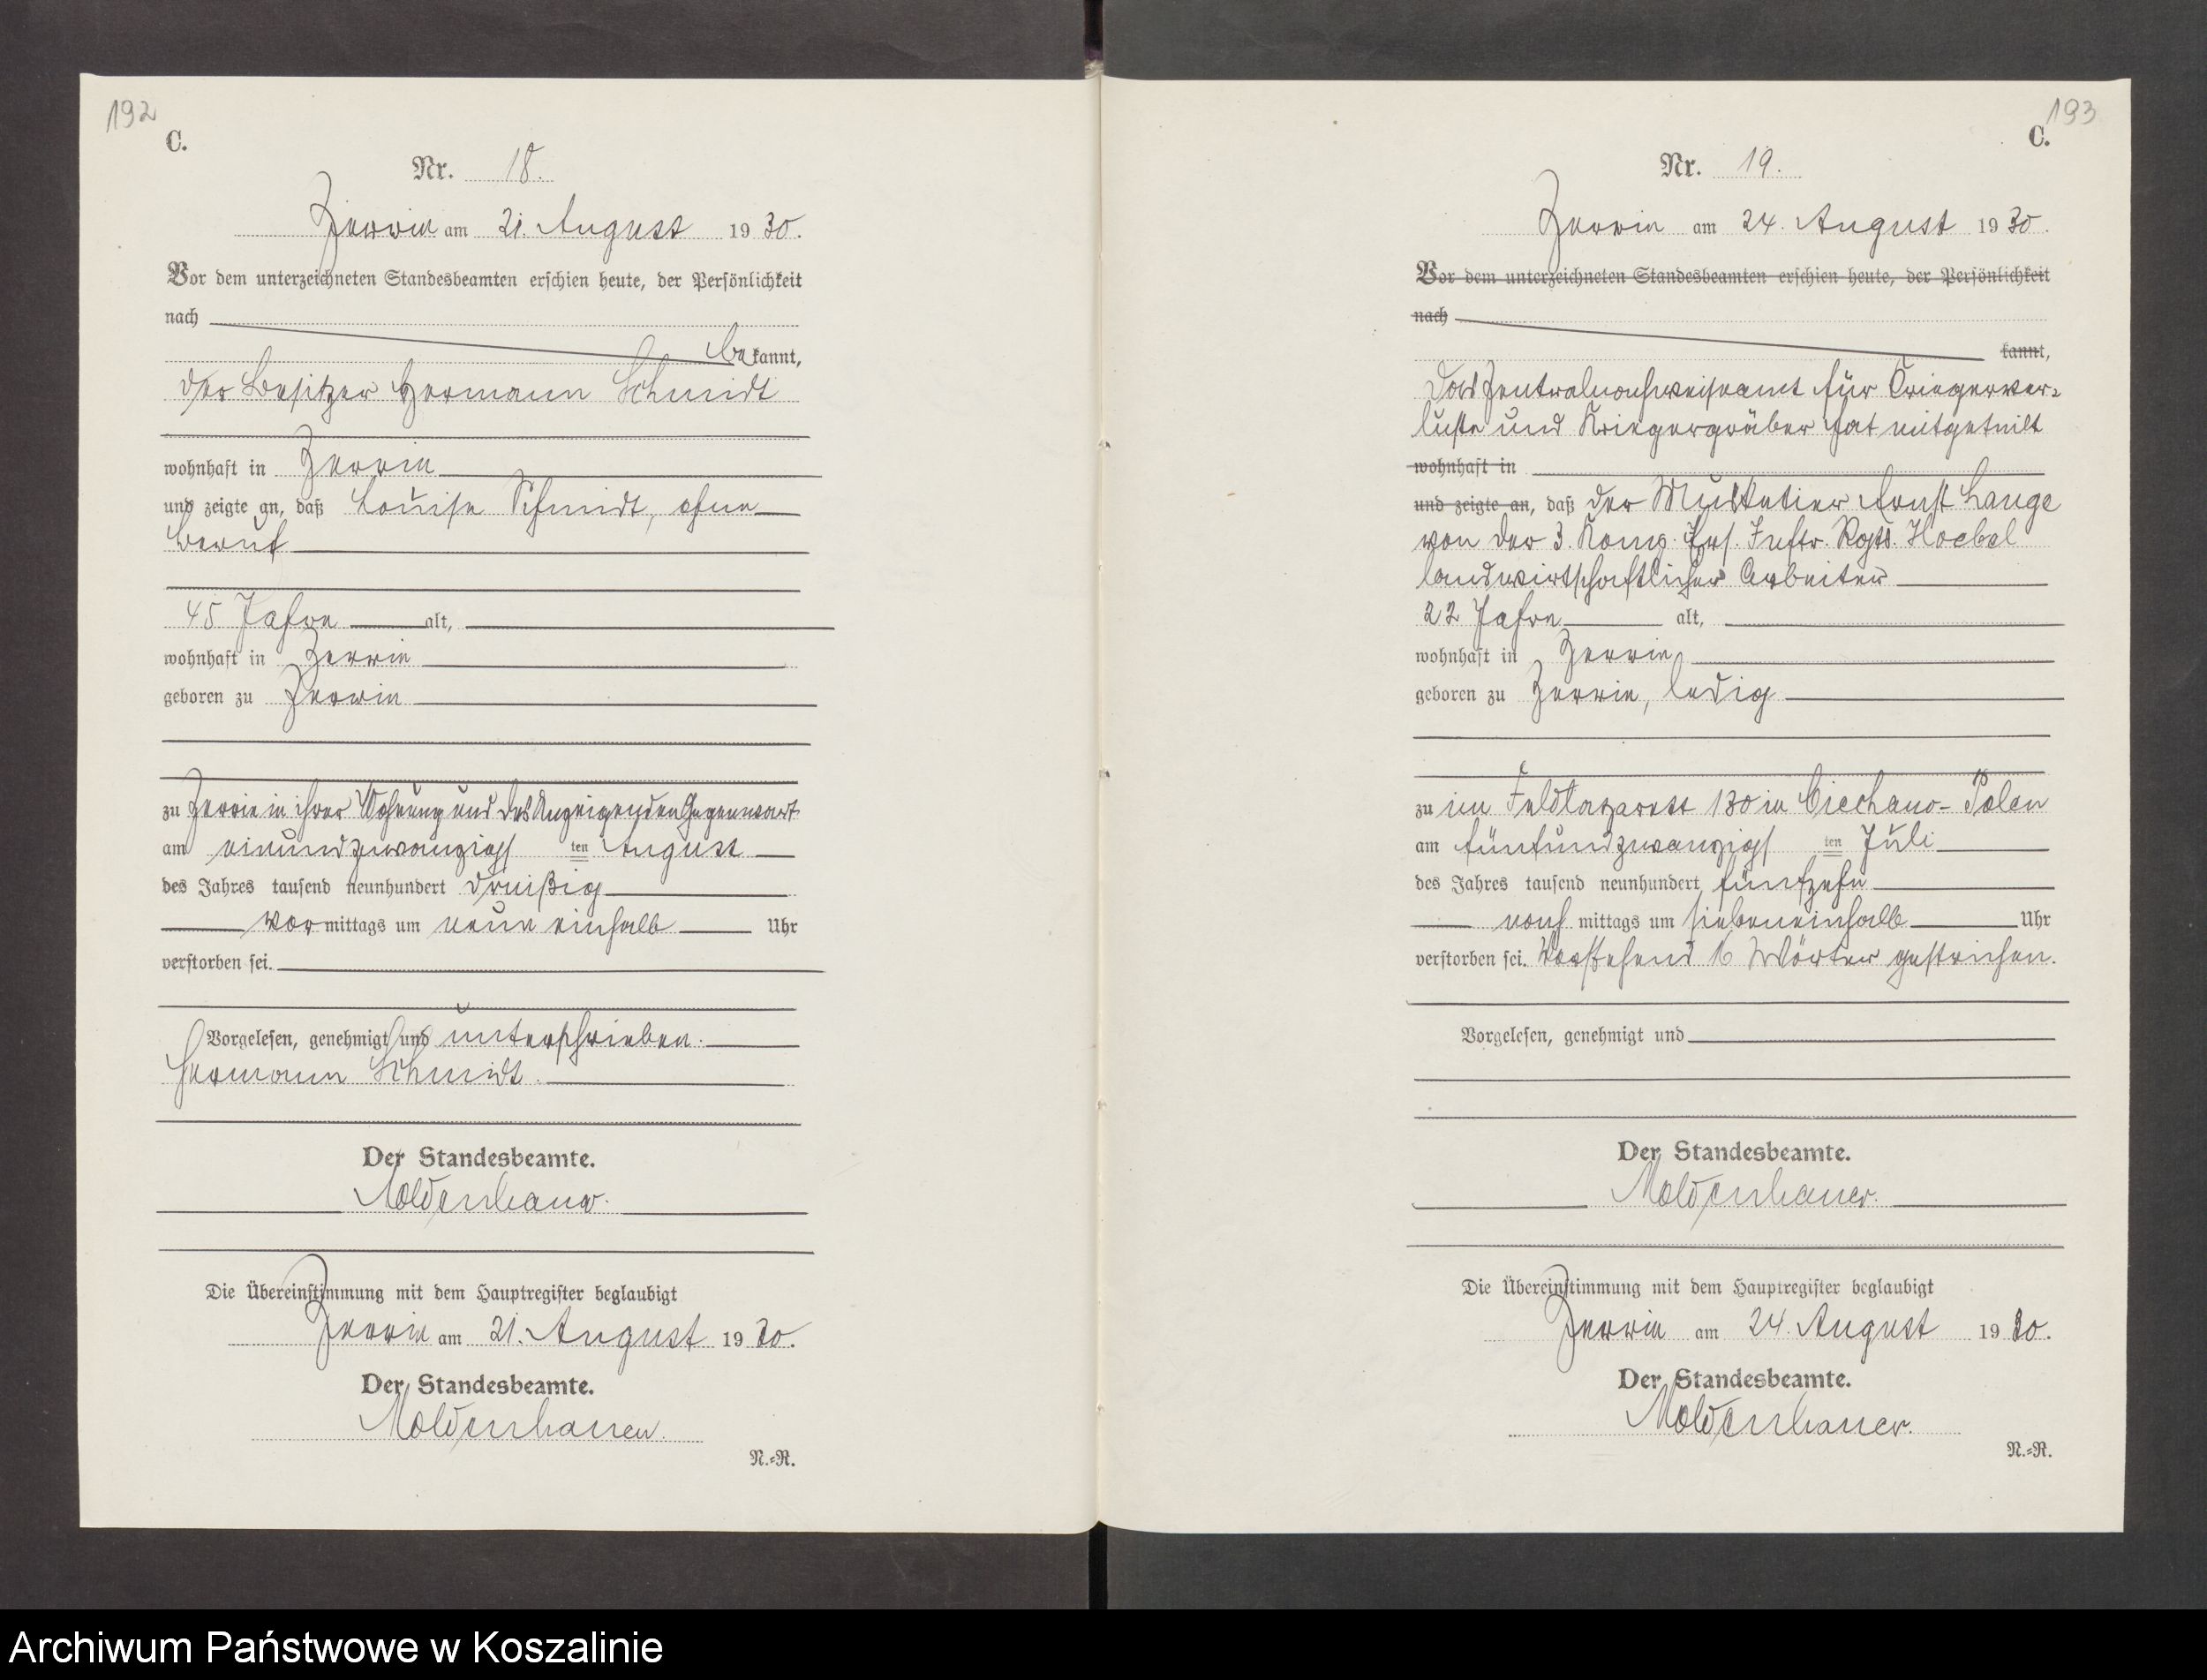 192
C.
Nr. 18.
Zerrin am 21. August 1930.
Vor dem unterzeichneten Standesbeamten erschien heute, der Persönlichkeit
nach
bekannt,
der Besitzer Hermann Schmidt
wohnhaft in Zerrin
und zeigte an, daß Louise Schmidt, ohne
Beruf
45 Jahre alt,
wohnhaft in Zerrin
geboren zu Zerrin
zu Zerrin in ihrer Wohnung und des Anzeigenden Gegenwart
am einundzwanzigsten August
des Jahres tausend neunhundert dreißig
vormittags um neun einhalb Uhr
verstorben sei.
Vorgelesen, genehmigt und unterschrieben.
Hermann Schmidt.
Der Standesbeamte.
Moldenhauer.
Die Übereinstimmung mit dem Hauptregister beglaubigt
Zerrin am 21. August 1930.
Der Standesbeamte.
Moldenhauer.
N.=R.
193
C.
Nr. 19.
Zerrin am 24. August 1930.
Vor dem unterzeichneten Standesbeamten erschien heute, der Persönlichkeit
nach
kannt,
Das Zentralnachweiseamt für Kriegerver=
luste und Kriegergräber hat mitgeteilt
wohnhaft in
und zeigte an, daß der Musketier Ernst Lange
von der 3. Komp. Ers. Inftr. Regts. Hoebel
landwirtschaftlicher Arbeiter
22 Jahre alt,
wohnhaft in Zerrin
geboren zu Zerrin, ledig
zu im Feldlazarett 130 in Ciechano- Polen
am fünfundzwanzigsten Juli
des Jahres tausend neunhundert fünfzehn
nachmittags um siebeneinhalb Uhr
verstorben sei. Vorstehend 16 Wörter gestrichen.
Vorgelesen, genehmigt und
Der Standesbeamte.
Moldenhauer.
Die Übereinstimmung mit dem Hauptregister beglaubigt
Zerrin am 24. August 1930.
Der Standesbeamte.
Moldenhauer.
N.=R.
Archiwum Państwowe w Koszalinie